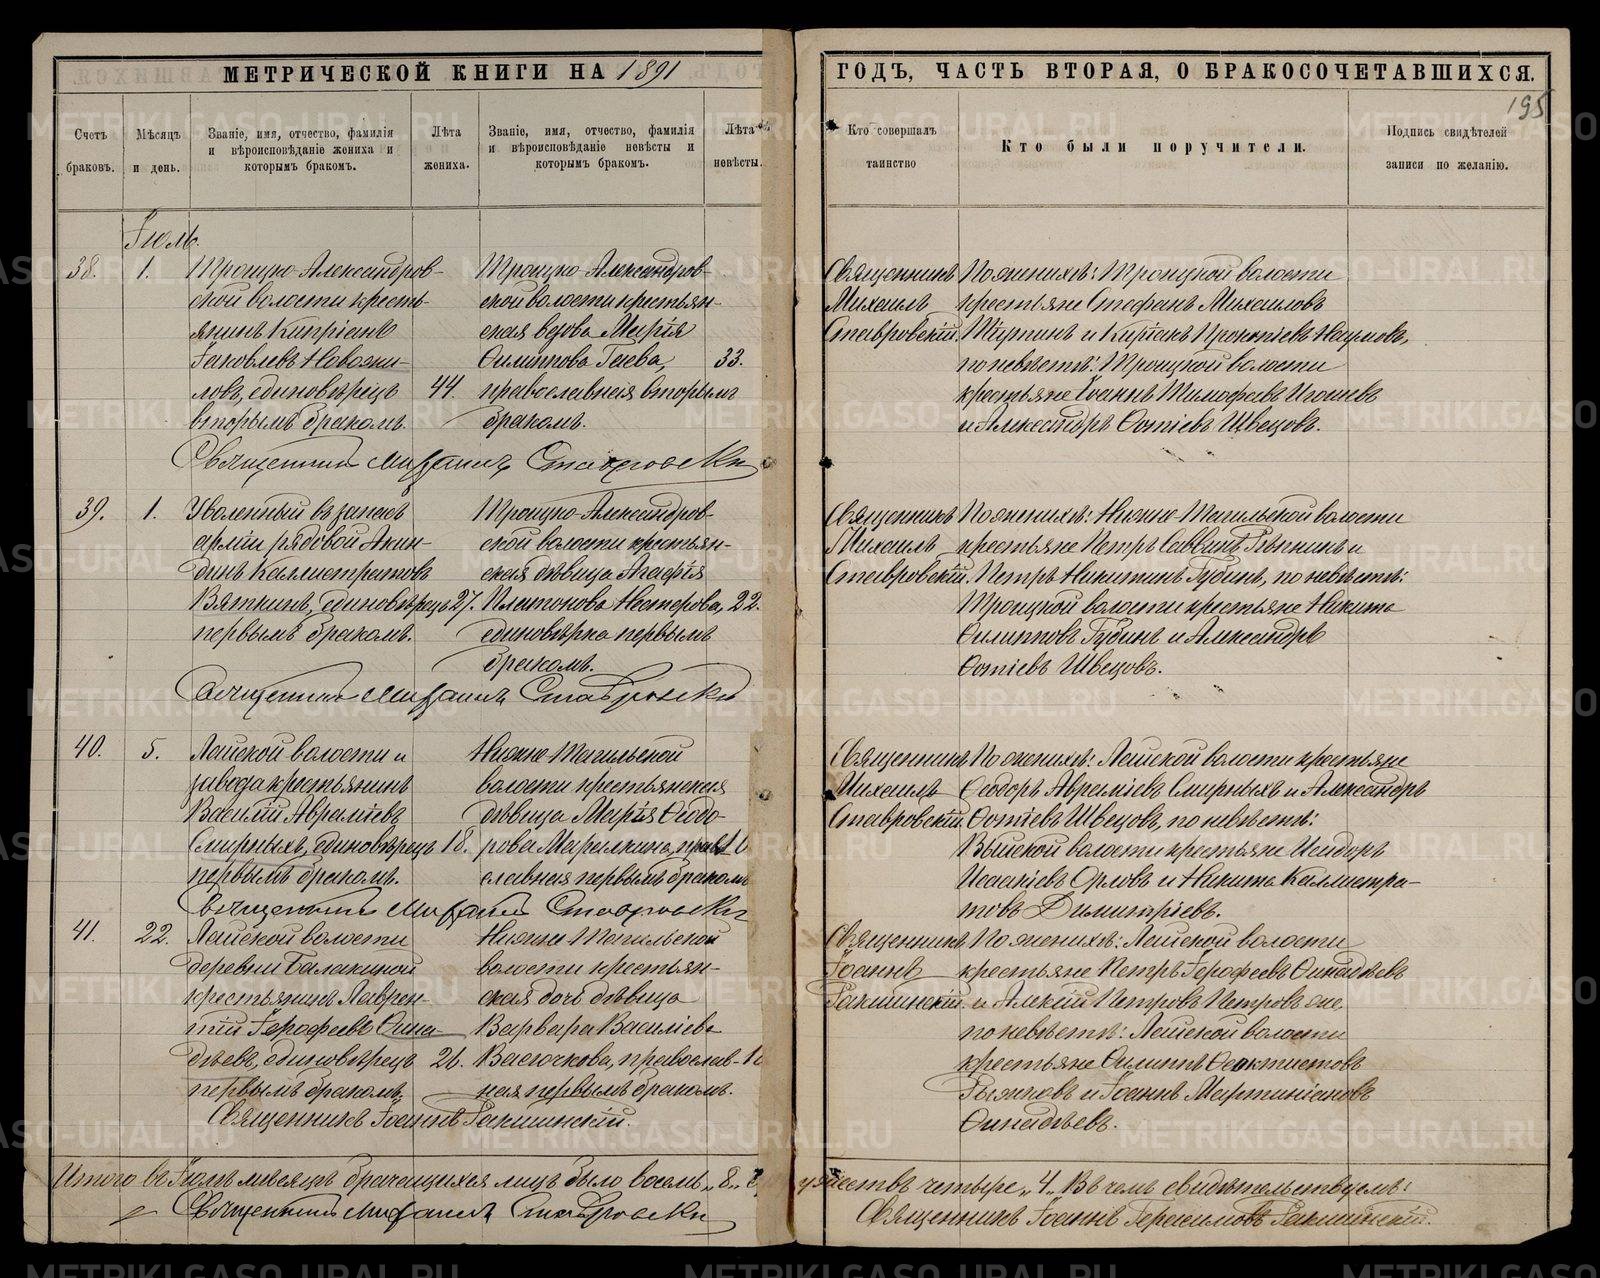 МЕТРИЧЕСКОЙ КНИГИ НА 1891
Счетъ браковъ.
Мѣсяцъ и день.
Званіе, имя, отчество, фамилія и вѣроисповѣданіе жениха и которымъ бракомъ.
Лѣта жениха.
Званіе, имя, отчество, фамилія и вѣроисповѣданіе невѣсты и которымъ бракомъ.
Лѣта невѣсты.
Іюль.
38.
1.
Троицко-Александров-
ской волости кресть-
янинъ Кипріанъ
Іаковлевъ Новожи-
ловъ, единовѣрецъ
вторымъ бракомъ.
44.
Троицко-Александров-
ской волости крестьян-
ская вдова Марія
Филиппова Гаева,
православная вторымъ
бракомъ.
33.
Священникъ Михаилъ Ставровскій
39.
1.
Уволенный въ запасъ
арміи рядовой Акин-
динъ Каллистратовъ
Вяткинъ, единовѣрецъ
первымъ бракомъ.
27.
Троицко-Александров-
ской волости крестьян-
ская дѣвица Агафія
Платонова Нестерова,
единовѣрка первымъ
бракомъ.
22.
Священникъ Михаилъ Ставровскій
40.
5.
Лайской волости и
завода крестьянинъ
Василій Авраміевъ
Смирныхъ, единовѣрецъ
первымъ бракомъ.
18.
Нижне-Тагильской
волости крестьянская
дѣвица Марія Ѳеодо-
рова
славная первымъ бракомъ
Священникъ Михаилъ Ставровскій
41.
22.
Лайской волости
деревни Балакиной
крестьянинъ Лаврен-
тій Іероѳеевъ Фина-
дѣевъ, единовѣрецъ
первымъ бракомъ.
26.
Нижне-Тагильской
волости крестьян-
ская дочь дѣвица
Варвара Василіева
Васючкова, православ-
ная первымъ бракомъ.
Священникъ Іоаннъ Гакшинскій.
Итого въ Іюлѣ мѣсяцѣ брачащихся лицъ было восемь „8„
Священникъ Михаилъ Ставровскій
ГОДЪ, ЧАСТЬ ВТОРАЯ, О БРАКОСОЧЕТАВШИХСЯ.
195
Кто совершалъ таинство
Кто были поручители.
Подпись свидѣтелей записи по желанію.
Священникъ
Михаилъ
Ставровскій.
По женихѣ: Троицкой волости
крестьяне Стефанъ Михаиловъ
и Киріакъ Прокопіевъ Наумовъ,
по невѣстѣ: Троицкой волости
крестьяне Іоаннъ Тимофеевъ Игошевъ
и Александръ Фотіевъ Швецовъ.
Священникъ
Михаилъ
Ставровскій.
По женихѣ: Нижне-Тагильской волости
крестьяне Петръ Саввинъ и
Петръ Никитинъ Губинъ, по невѣстѣ:
Троицкой волости крестьяне Никита
Филипповъ Губинъ и Александръ
Фотіевъ Швецовъ.
Священникъ
Михаилъ
Ставровскій.
По женихѣ: Лайской волости крестьяне
Ѳеодоръ Авраміевъ Смирныхъ и Александръ
Фотіевъ Швецовъ, по невѣстѣ:
Выйской волости крестьяне Исидоръ
Исаакіевъ Орловъ и Никита Каллистра-
товъ Димитріевъ.
Священникъ
Іоаннъ
Гакшинскій.
По женихѣ: Лайской волости
крестьяне Петръ Іероѳеевъ Финадѣевъ
и Алексій Петровъ Петровъ же,
по невѣстѣ: Лайской волости
крестьяне Филиппъ Ѳеоктистовъ
Рыжковъ и Іоаннъ Мартиніановъ
Финадѣевъ.
четыре „4„ Въ чемъ свидѣтельствуемъ:
Священникъ Іоаннъ Герасимовъ Гакшинскій.
METRIKI.GASO-URAL.RU